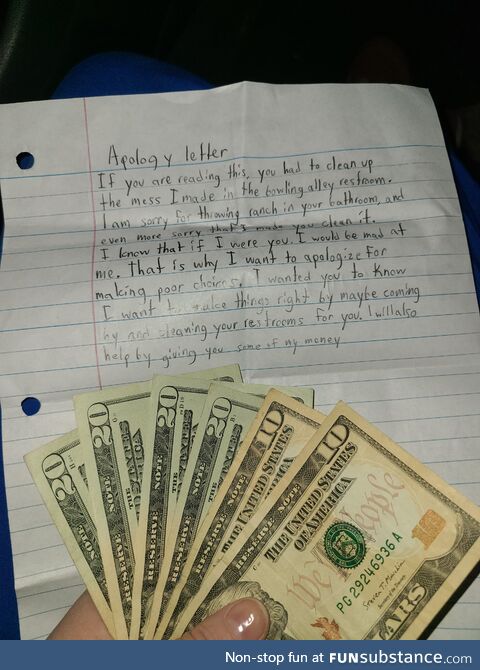 Apology letter
If you are reading this, you had to clean up
the mess I made in the bowling alley restroom.
I am sorry for throwing ranch in your bathroom, and
even more sorry that I made you clean it.
I know that if I were you. I would be mad at
me. That is why I want to apologize for
making poor choices. I wanted you to know
I want to make things right by maybe coming
by and cleaning your restrooms for you. I will also
help by giving you some of my money
20
20
20
20
10
10
THE UNITED STATES
OF AMERICA
RESERVE NOTE
THE UNITED STATES
RESERVE NOTE
RESERVE NOTE
RESERVE NOTE
We the People
PG 29246936 A
Non-stop fun at FUNsubstance.com